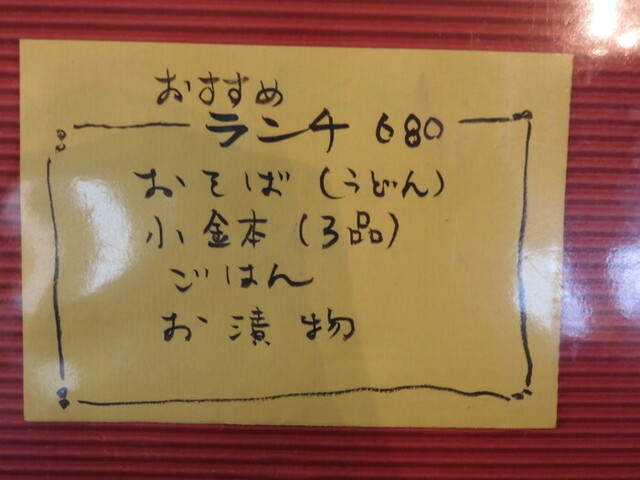 おすすめ
ランチ 680
おそば(うどん)
小鉢(3品)
ごはん
お漬物